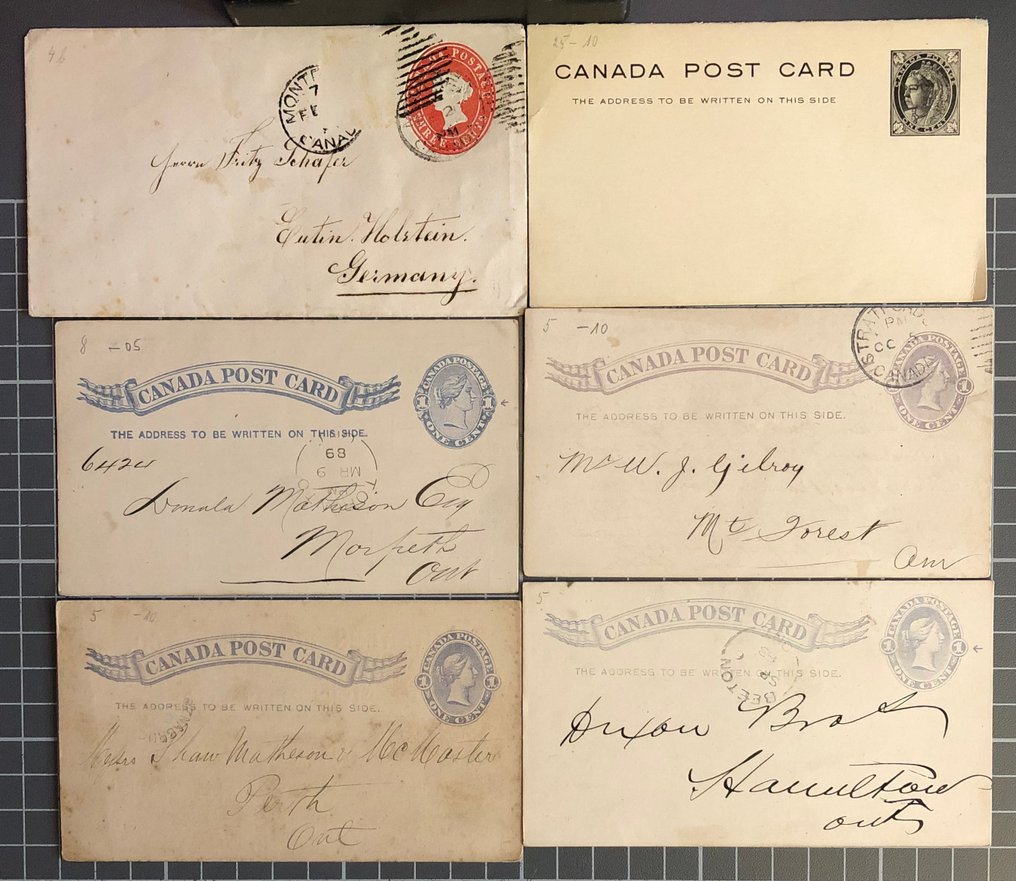 48
MONTR
7
FE
CANAD
POSTAGE
THREE
PM
Herrn Fritz Schäfer
Eutin. Holstein.
Germany.
25-10
CANADA POST CARD
THE ADDRESS TO BE WRITTEN ON THIS SIDE
8 -05
CANADA POST CARD
CANADA POSTAGE
1 1
ONE CENT
THE ADDRESS TO BE WRITTEN ON THIS SIDE.
MR 9
89
6424
Donald Matheson Esq
Morpeth
Ont
5 -10
CANADA POST CARD
CANADA POSTAGE
1
ONE CENT
STRATFORD
PM
OC 5
CANADA
THE ADDRESS TO BE WRITTEN ON THIS SIDE.
Mr W. J. Gilroy
Mt Forest
Ont
5 -10
CANADA POST CARD
CANADA POSTAGE
1 1
ONE CENT
THE ADDRESS TO BE WRITTEN ON THIS SIDE.
Messrs Shaw Matheson & McMaster
Perth
Ont
5
CANADA POST CARD
CANADA POSTAGE
1 1
ONE CENT
THE ADDRESS TO BE WRITTEN ON THIS SIDE.
BEETON
Dixon Bros
Hamilton
Ont